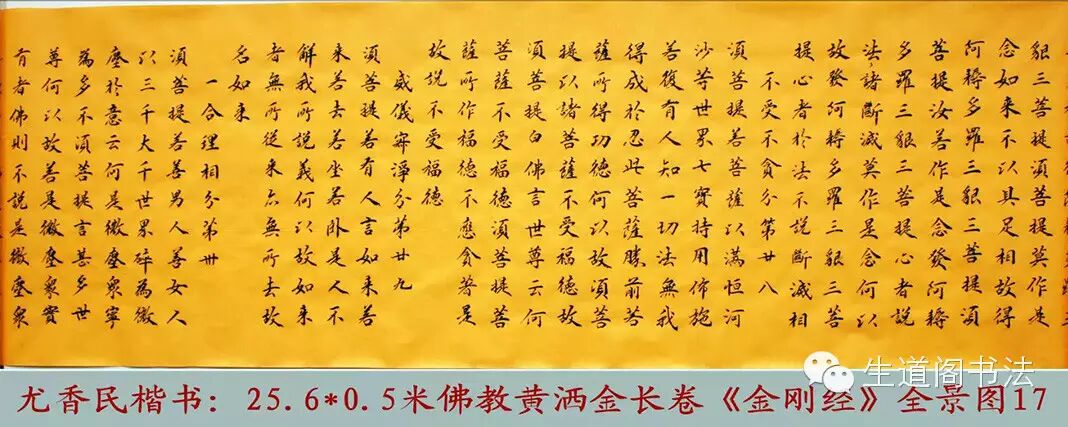 藐三菩提須菩提莫作是
念如来不以具足相故得
阿耨多羅三藐三菩提須
菩提汝若作是念發阿耨
多羅三藐三菩提心者說
法諸斷滅莫作是念何以
故發阿耨多羅三藐三菩
提心者於法不說斷滅相
不受不貪分第廿八
須菩提若菩薩以滿恒河
沙等世界七寶持用佈施
若復有人知一切法無我
得成於忍此菩薩勝前菩
薩所得功德何以故須菩
提以諸菩薩不受福德故
須菩提白佛言世尊云何
菩薩不受福德須菩提菩
薩所作福德不應貪著是
故說不受福德
威儀寂淨分第廿九
須菩提若有人言如来若
来若去若坐若卧是人不
解我所說義何以故如来
者無所從来亦無所去故
名如来
一合理相分第卅
須菩提若善男人善女人
以三千大千世界碎為微
塵於意云何是微塵眾寧
為多不須菩提言甚多世
尊何以故若是微塵眾實
有者佛則不說是微塵眾
生道阁书法
尤香民楷书：25.6*0.5米佛教黄洒金长卷《金刚经》全景图17